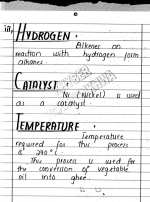 iii,
HYDROGEN :
Alkenes on
reaction with hydrogen form
alkanes.
CATALYST :
Ni (Nickel) is used
as a catalyst.
TEMPERATURE :
Temperature
required for this process
is 240°C.
This process is used for
the conversion of vegetable
oil into ghee.